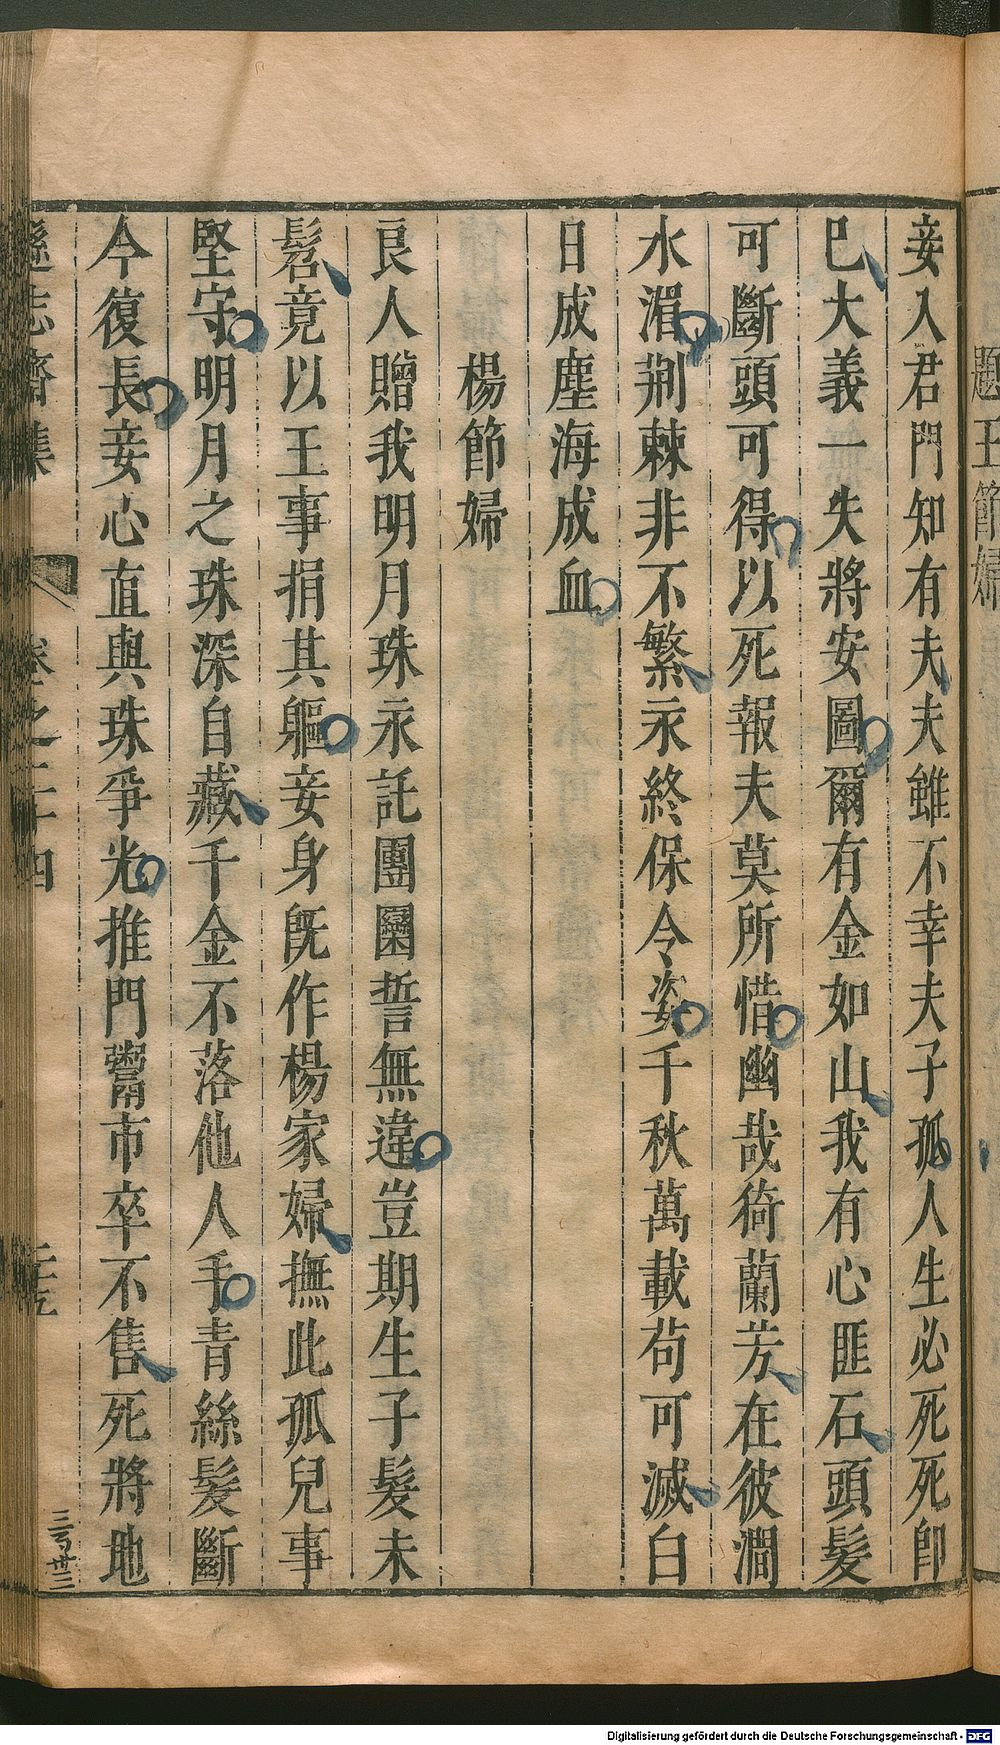 題王節婦
妾入君門知有夫夫雖不幸夫子孤人生必死死即
已大義一失將安圖爾有金如山我有心匪石頭髮
可斷頭可得以死報夫莫所惜幽哉猗蘭芳在彼澗
水湄荆棘非不繁永終保令姿千秋萬載苟可滅白
日成塵海成血
楊節婦
良人贈我明月珠永託團圞誓無違豈期生子髮未
髫竟以王事捐其軀妾身既作楊家婦撫此孤兒事
堅守明月之珠深自藏千金不落他人手青絲髮斷
今復長妾心直與珠爭光推門鬻市卒不售死將地
遜志齋集 卷之二十四 二十五
三百卅三
Digitalisierung gefördert durch die Deutsche Forschungsgemeinschaft - DFG